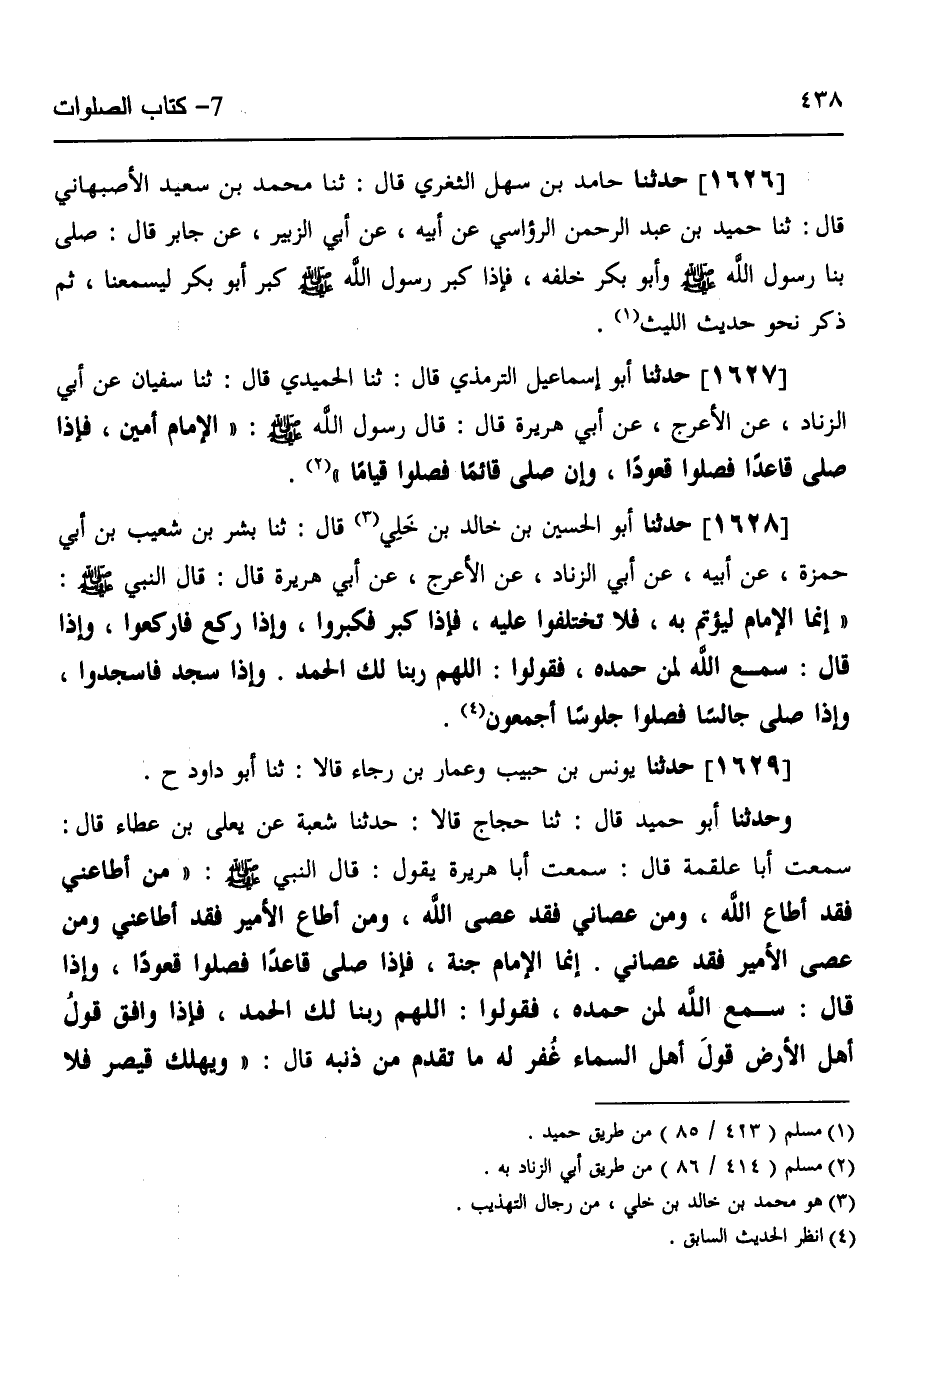 ٤٣٨
7- كتاب الصلوات
[١٦٢٦] حدثنا حامد بن سهل الثغري قال : ثنا محمد بن سعيد الأصبهاني
قال : ثنا حميد بن عبد الرحمن الرؤاسي عن أبيه ، عن أبي الزبير ، عن جابر قال : صلى
بنا رسول اللَّه ﷺ وأبو بكر خلفه ، فإذا كبر رسول اللَّه ﷺ كبر أبو بكر ليسمعنا ، ثم
ذكر نحو حديث الليث(١) .
[١٦٢٧] حدثنا أبو إسماعيل الترمذي قال : ثنا الحميدي قال : ثنا سفيان عن أبي
الزناد ، عن الأعرج ، عن أبي هريرة قال : قال رسول اللَّه ﷺ : « الإمام أمين ، فإذا
صلى قاعدًا فصلوا قعودًا ، وإن صلى قائمًا فصلوا قيامًا »(٢) .
[١٦٢٨] حدثنا أبو الحسين بن خالد بن خَلِي(٣) قال : ثنا بشر بن شعيب بن أبي
حمزة ، عن أبيه ، عن أبي الزناد ، عن الأعرج ، عن أبي هريرة قال : قال النبي ﷺ :
« إنما الإمام ليؤتم به ، فلا تختلفوا عليه ، فإذا كبر فكبروا ، وإذا ركع فاركعوا ، وإذا
قال : سمـع اللَّه لمن حمده ، فقولوا : اللهم ربنا لك الحمد . وإذا سجد فاسجدوا ،
وإذا صلى جالسًا فصلوا جلوسًا أجمعون(٤) .
[١٦٢٩] حدثنا يونس بن حبيب وعمار بن رجاء قالا : ثنا أبو داود ح .
وحدثنا أبو حميد قال : ثنا حجاج قالا : حدثنا شعبة عن يعلى بن عطاء قال :
سمعت أبا علقمة قال : سمعت أبا هريرة يقول : قال النبي ﷺ : « من أطاعني
فقد أطاع اللَّه ، ومن عصاني فقد عصى اللَّه ، ومن أطاع الأمير فقد أطاعني ومن
عصى الأمير فقد عصاني . إنما الإمام جنة ، فإذا صلى قاعدًا فصلوا قعودًا ، وإذا
قال : سـمع اللَّه لمن حمده ، فقولوا : اللهم ربنا لك الحمد ، فإذا وافق قولُ
أهل الأرض قولَ أهل السماء غُفر له ما تقدم من ذنبه قال : « ويهلك قيصر فلا
(١) مسلم ( ٤١٣ / ٨٥ ) من طريق حميد .
(٢) مسلم ( ٤١٤ / ٨٦ ) من طريق أبي الزناد به .
(٣) هو محمد بن خالد بن خلي ، من رجال التهذيب .
(٤) انظر الحديث السابق .